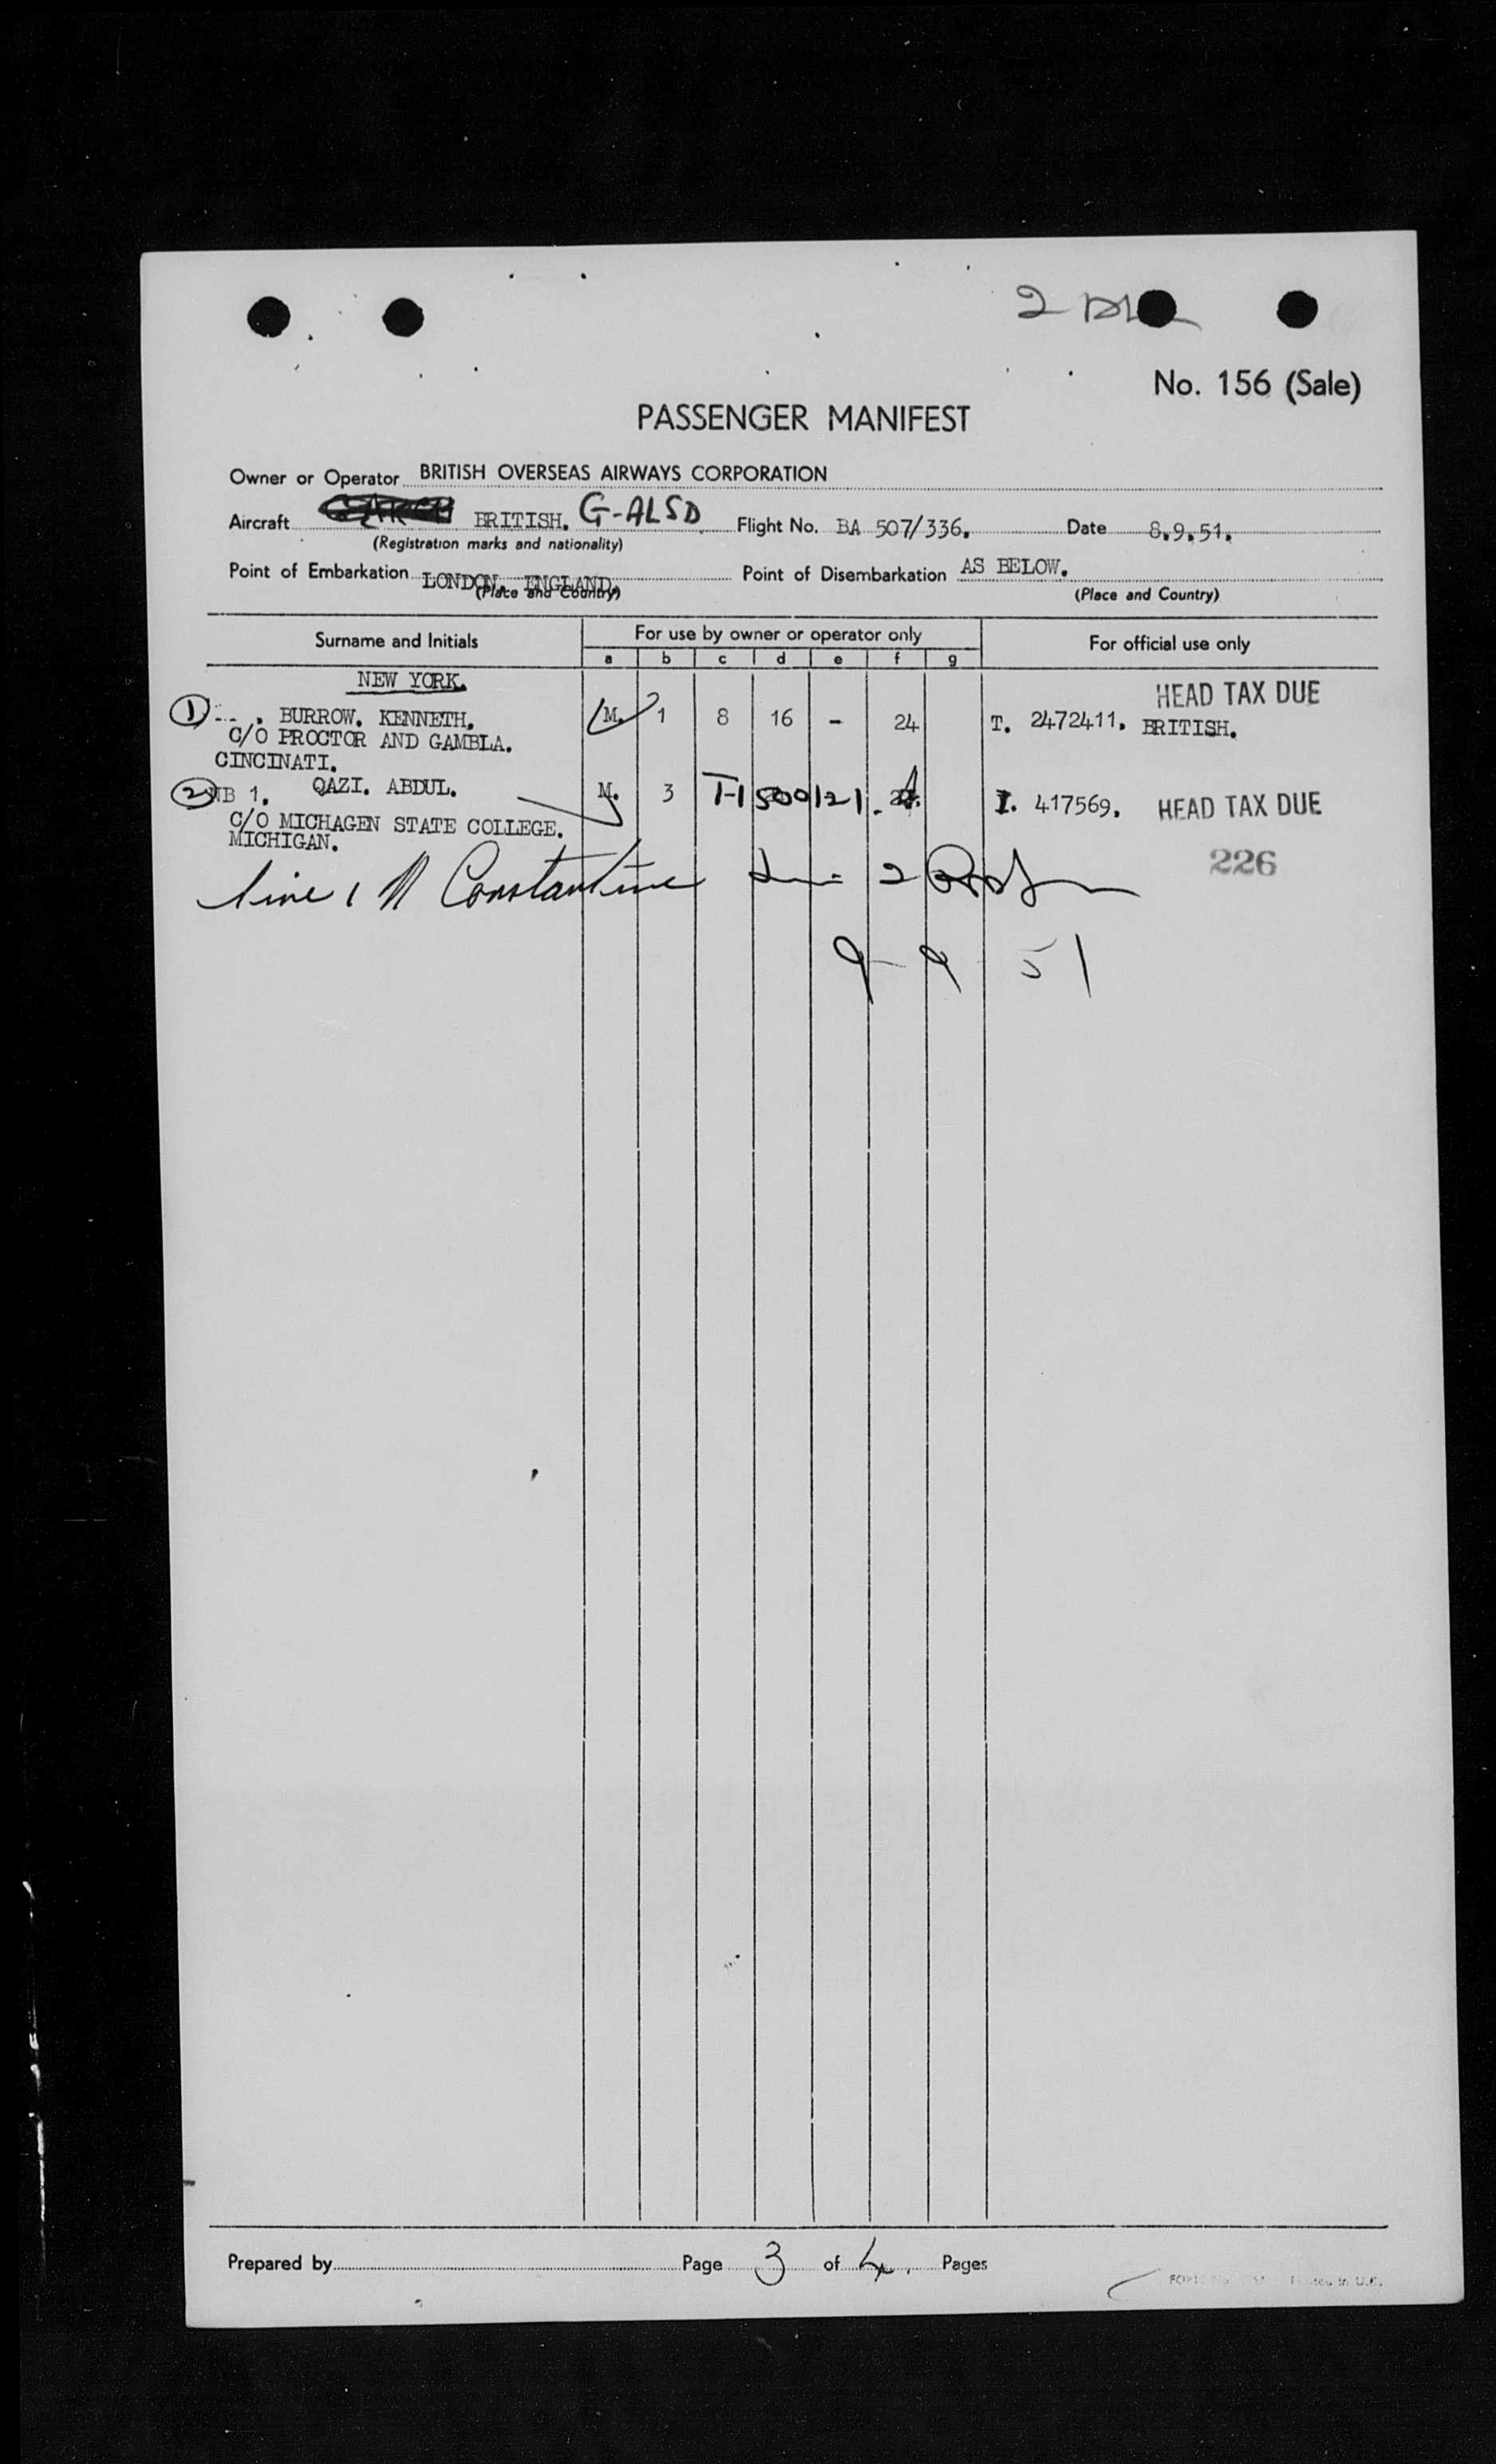 2
No. 156 (Sale)
PASSENGER MANIFEST
Owner or Operator BRITISH OVERSEAS AIRWAYS CORPORATION
Aircraft BRITISH. G-ALSD Flight No. BA 507/336. Date 8.9.51.
(Registration marks and nationality)
Point of Embarkation LONDON. ENGLAND. Point of Disembarkation AS BELOW.
(Place and Country) (Place and Country)
Surname and Initials For use by owner or operator only For official use only
a b c d e f g
NEW YORK.
HEAD TAX DUE
1 . BURROW. KENNETH. M. 1 8 16 - 24 T. 2472411. BRITISH.
C/O PROCTOR AND GAMBLA.
CINCINATI.
2 WB 1. QAZI. ABDUL. M. 3 T-1500121. I. 417569. HEAD TAX DUE
C/O MICHAGEN STATE COLLEGE.
MICHIGAN.
226
line 1 N Constantine 2
9-9 51
Prepared by Page 3 of 4. Pages
Printed in U.K.